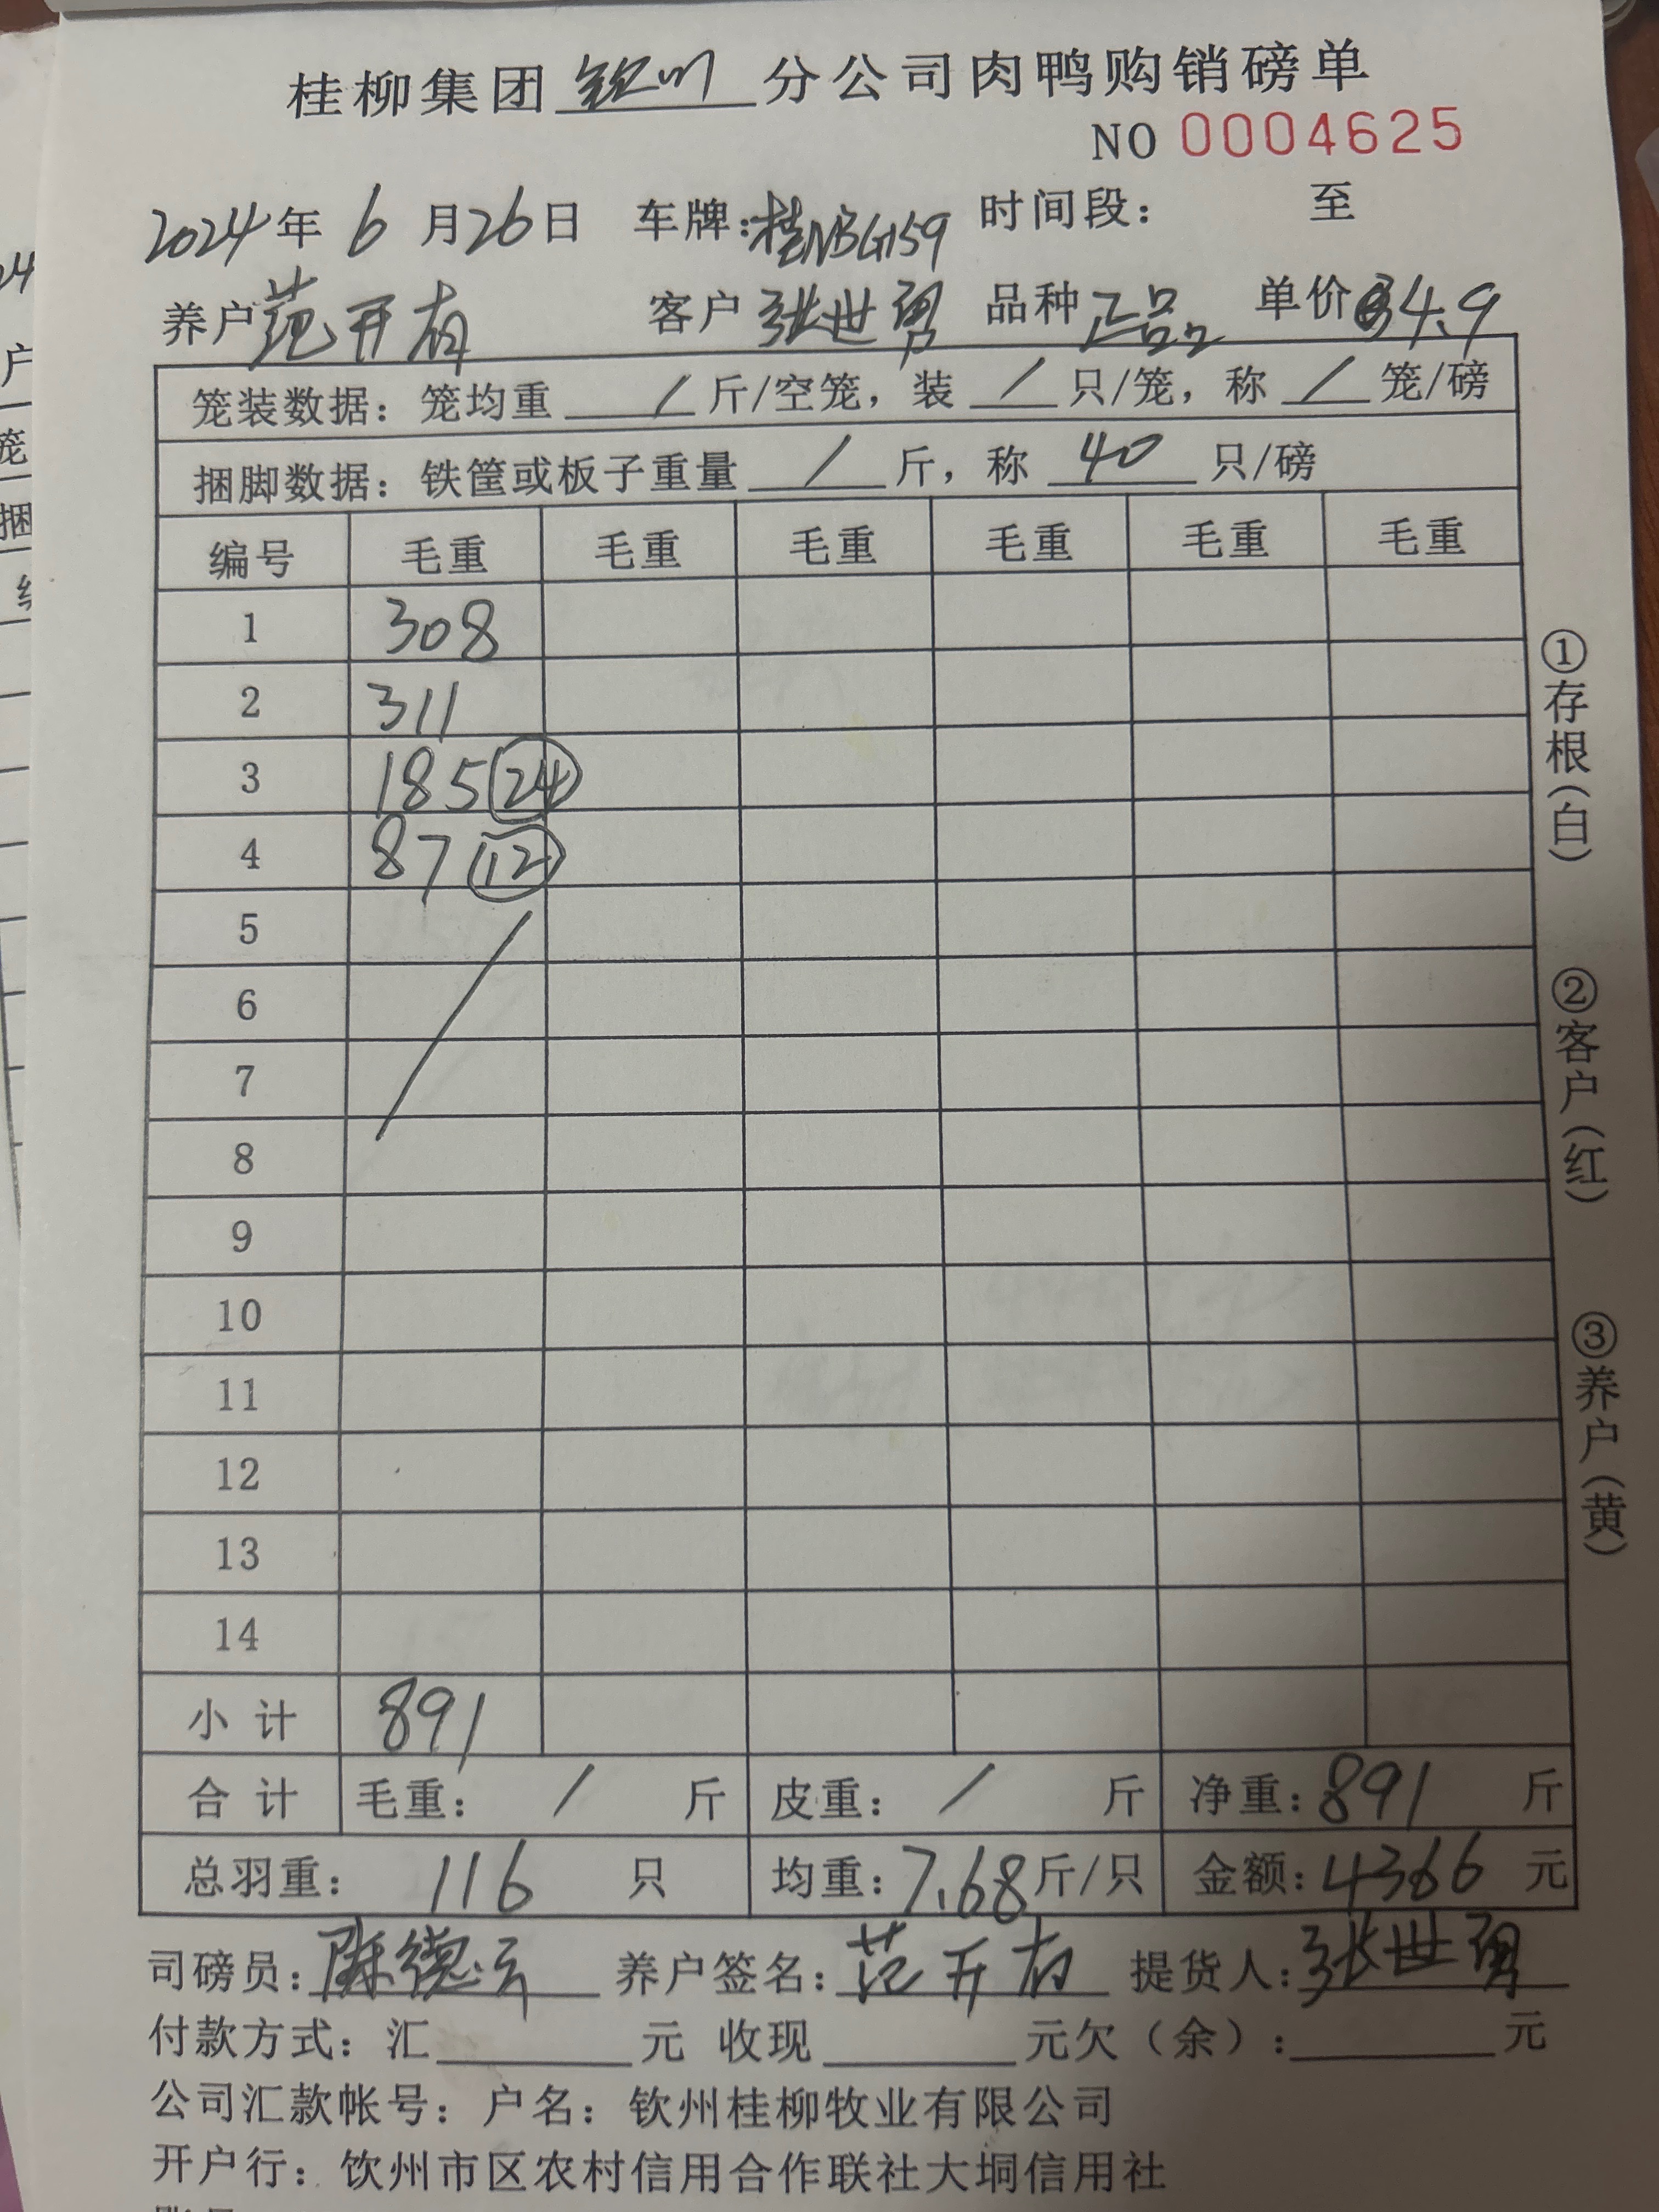 桂柳集团钦州分公司肉鸭购销磅单
NO 0004625
2024年 6 月26日 车牌:桂NBG159 时间段: 至
养户范开有 客户张世勇 品种正品 单价4.9
笼装数据: 笼均重 / 斤/空笼, 装 / 只/笼, 称 / 笼/磅
捆脚数据: 铁筐或板子重量 / 斤, 称 40 只/磅
编号 毛重 毛重 毛重 毛重 毛重 毛重
1 308
2 311
3 185 24
4 87 12
5
6
7
8
9
10
11
12
13
14
小计 891
合计 毛重: / 斤 皮重: / 斤 净重: 891 斤
总羽重: 116 只 均重: 7.68斤/只 金额: 4366 元
司磅员: 陈德云 养户签名: 范开有 提货人: 张世勇
付款方式: 汇 元 收现 元欠(余): 元
公司汇款帐号: 户名: 钦州桂柳牧业有限公司
开户行: 钦州市区农村信用合作联社大垌信用社
①存根(白)
②客户(红)
③养户(黄)